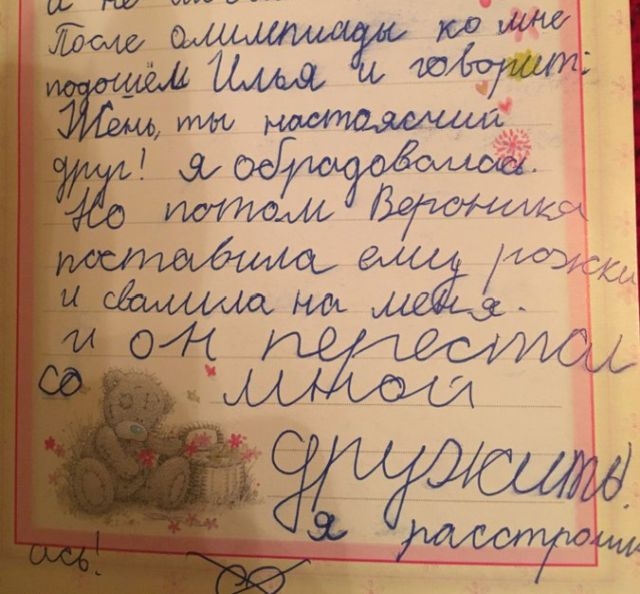 После олимпиады ко мне
подошём Илья и говорит:
Жень, ты настоясчий
друг! Я обрадовалась.
Но потом Вероника
поставила ему рожки
и свалила на меня.
и он перестал
со мной
дружить!
я расстрои
ась!